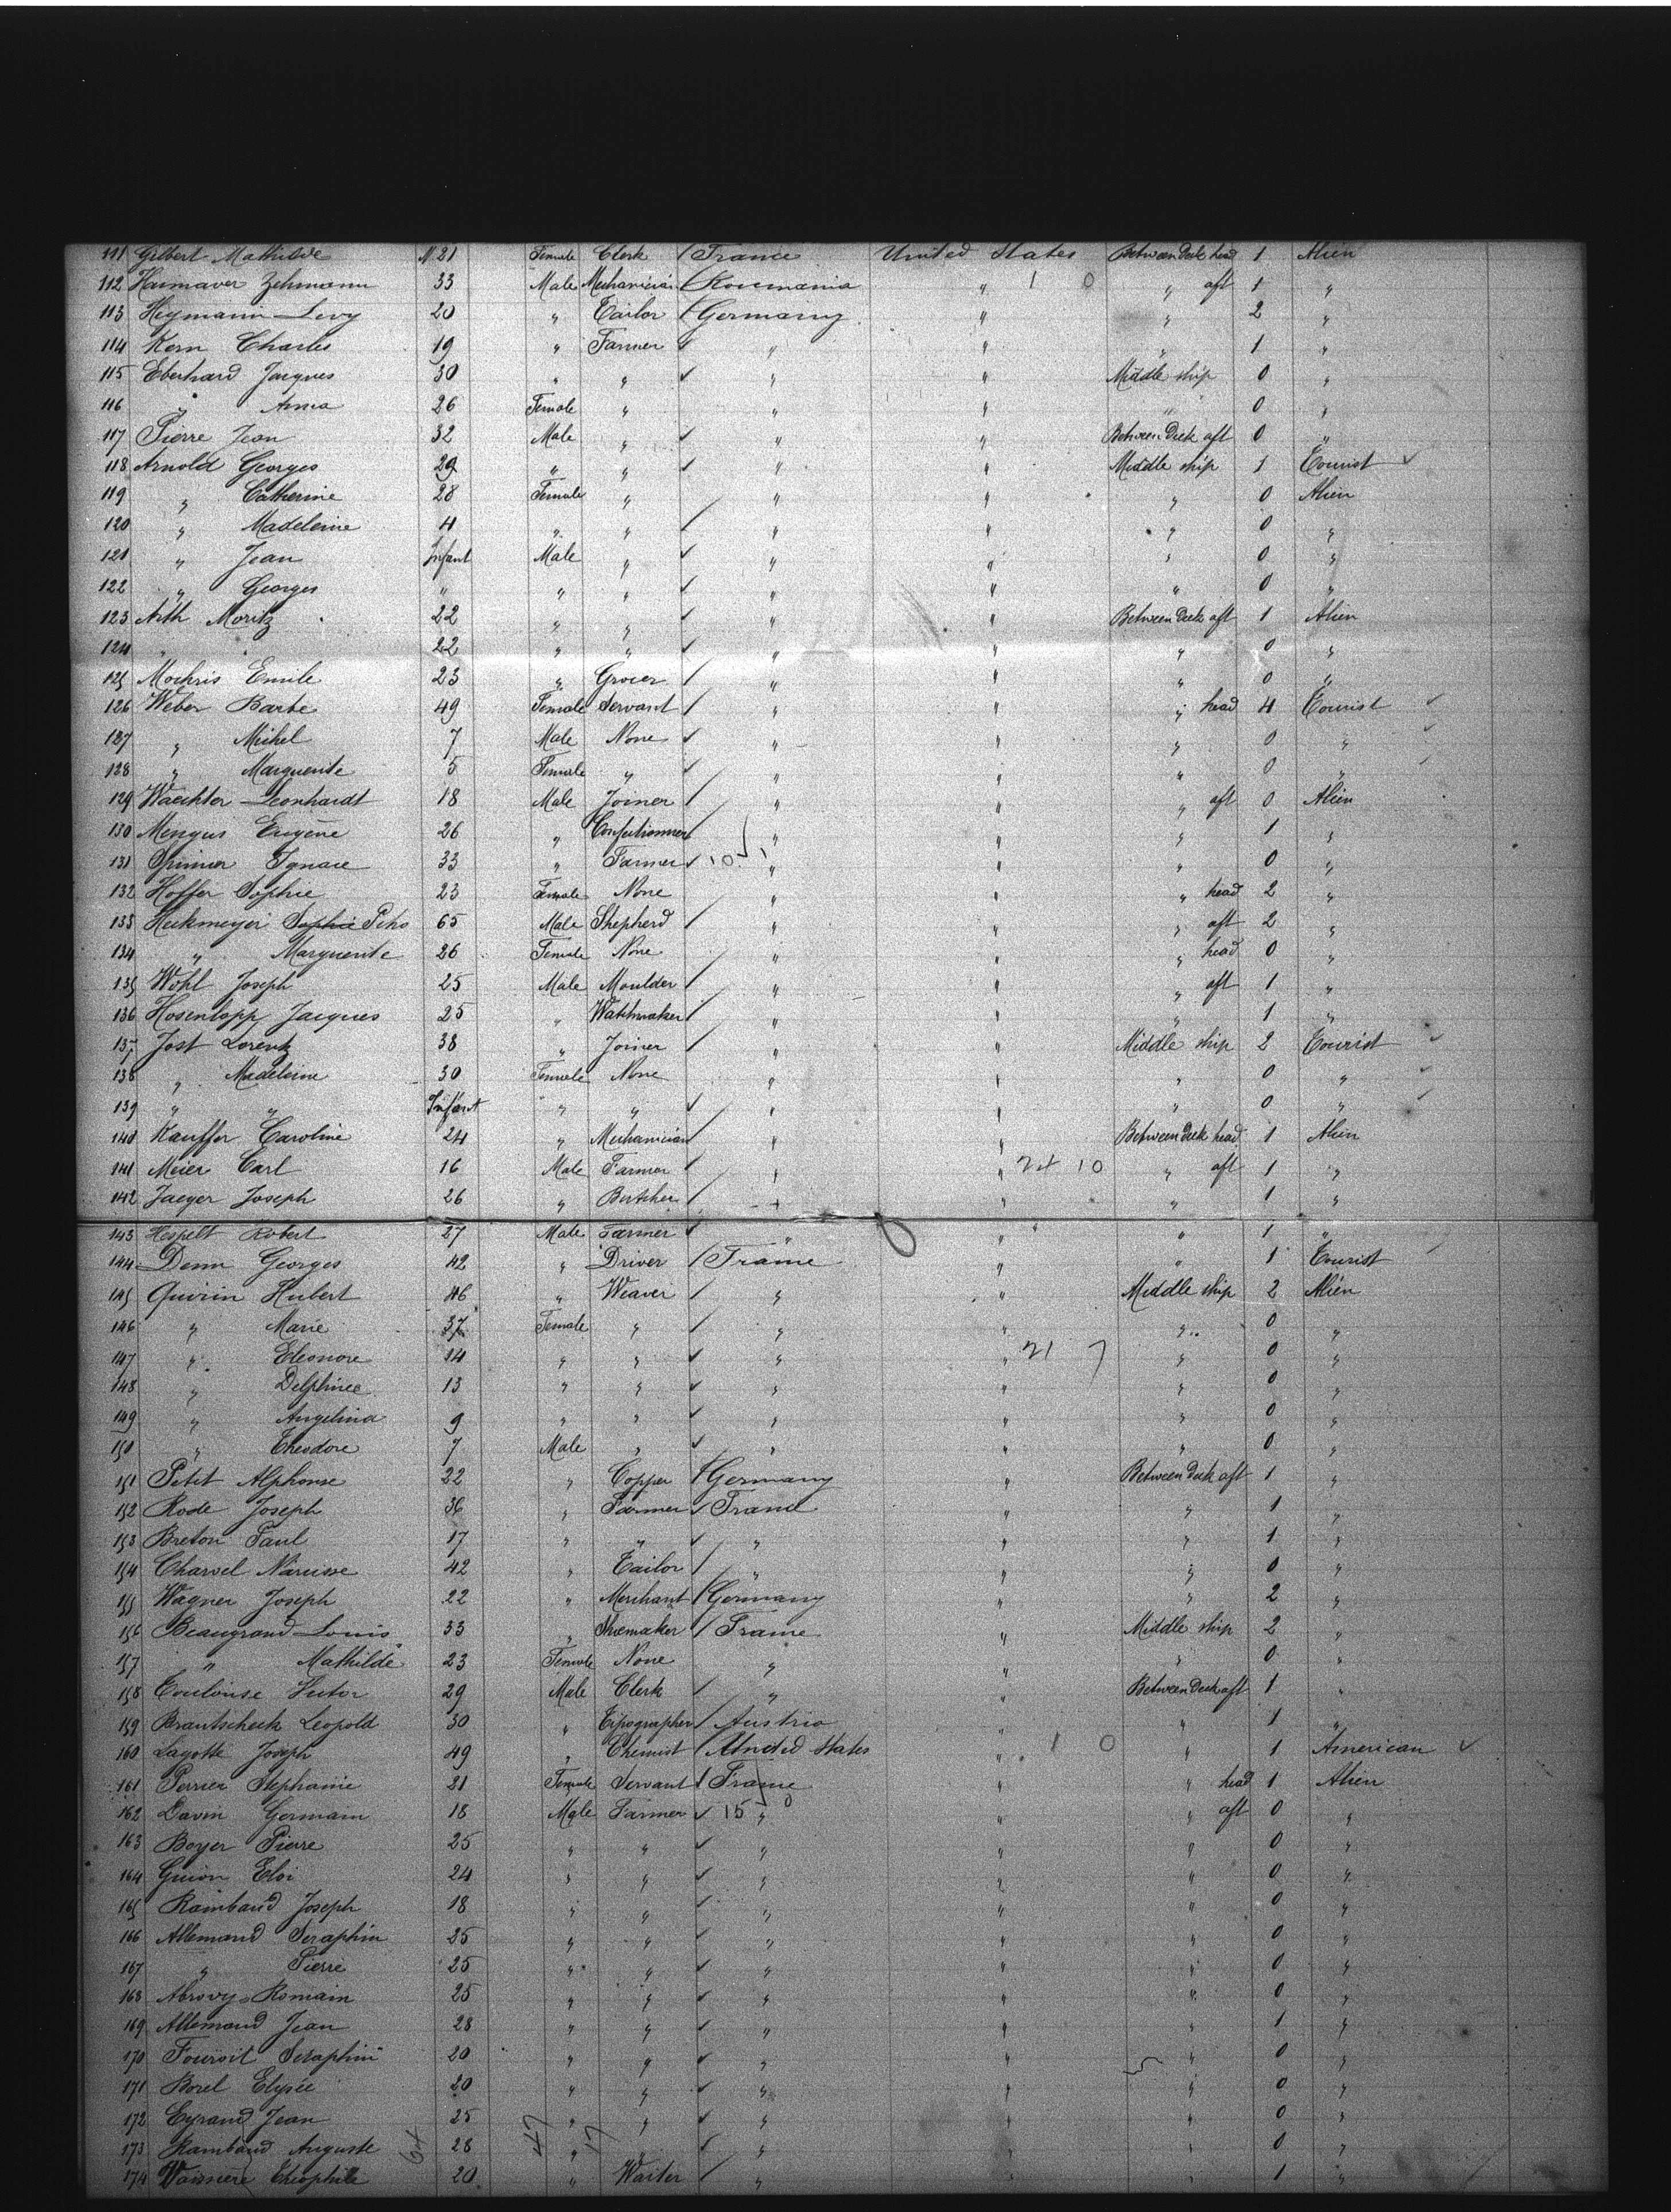 111 Gilbert Mathilde 21 Female Clerk / France United States Between Deck head 1 Alien
112 Haimaver Zehmann 33 Male Mechanician / Roumania " 1 0 " aft 1 "
113 Heymann Levy 20 " Tailor / Germany " " 2 "
114 Kern Charles 19 " Farmer ✓ " " " 1 "
115 Eberhard Jacques 30 " " ✓ " " Middle ship 0 "
116 " Anna 26 Female " " " " 0 "
117 Pierre Jean 32 Male " ✓ " " Between Deck aft 0 "
118 Arnold Georges 29 " " ✓ " " Middle ship 1 Tourist ✓
119 " Catherine 28 Female " " " " 0 Alien
120 " Madeleine 4 " " / " " " 0 "
121 " Jean Infant Male " ✓ " " " 0 "
122 " Georges " " " ✓ " " " 0 "
123 Arth Moritz 22 " " ✓ " " Between Deck aft 1 Alien
124 " " 22 " " ✓ " " " 0 "
125 Mochris Emile 23 " Grocer / " " " 0 "
126 Weber Barbe 49 Female Servant / " " " head 4 Tourist ✓
127 " Michel 7 Male None ✓ " " " 0 " ✓
128 " Marguerite 5 Female " ✓ " " " 0 " ✓
129 Waechter Leonhardt 18 Male Joiner / " " " aft 0 Alien
130 Mengus Eugène 26 " Confectionner / " " " 1 "
131 Ignace 33 " Farmer ✓ 10 1 " " " 0 "
132 Hoffer Sophie 23 Female None " " " head 2 "
133 Heckmeyer Sophie 65 Male Shepherd / " " " aft 2 "
134 " Marguerite 26 Female None " " " head 0 "
135 Wohl Joseph 25 Male Moulder / " " " aft 1 "
136 Hosenlopp Jacques 25 " Watchmaker / " " " 1 "
137 Jost Lorentz 38 " Joiner / " " Middle ship 2 Tourist ✓
138 " Madeleine 30 Female None " " " 0 " ✓
139 " " Infant " " ✓ " " " 0 " ✓
140 Kauffer Caroline 24 " Mechanician " " Between Deck head 1 Alien
141 Meier Carl 16 Male Farmer / " " 24 10 " aft 1 "
142 Jaeger Joseph 26 " Butcher / " " " 1 "
143 Hespelt Robert 27 Male Farmer ✓ " " " 1 "
144 Denn Georges 42 " Driver / France " " 1 Tourist
145 Quirin Hubert 46 " Weaver / " " Middle ship 2 Alien
146 " Marie 37 Female " / " " " 0 "
147 " Eleonore 14 " " ✓ " " 21 7 " 0 "
148 " Delphine 13 " " ✓ " " " 0 "
149 " Angelina 9 " " ✓ " " " 0 "
150 " Theodore 7 Male " ✓ " " " 0 "
151 Petit Alphonse 22 " Copper / Germany " Between Deck aft 1 "
152 Rode Joseph 36 " Farmer ✓ France " " 1 "
153 Breton Paul 17 " " ✓ " " " 1 "
154 Charvel Narcisse 42 " Tailor / " " " 0 "
155 Wagner Joseph 22 " Merchant / Germany " " 2 "
156 Beaugrand Louis 33 " Shoemaker / France " Middle ship 2 "
157 " Mathilde 23 Female None " " " 0 "
158 Toulouse Victor 29 Male Clerk / " " Between Deck aft 1 "
159 Brautscheck Leopold 30 " Tipographer / Austria " " 1 "
160 Lagotte Joseph 49 " Chemist / United States " 1 0 " 1 American ✓
161 Perrier Stephanie 21 Female Servant / France " " head 1 Alien
162 Davin Germain 18 Male Farmer ✓ 15 " 0 " " aft 0 "
163 Boyer Pierre 25 " " ✓ " " " 0 "
164 Guion Eloi 24 " " ✓ " " " 0 "
165 Rambaud Joseph 18 " " ✓ " " " 0 "
166 Allemand Seraphin 25 " " ✓ " " " 0 "
167 " Pierre 25 " " ✓ " " " 0 "
168 Romain 25 " " ✓ " " " 0 "
169 Allemand Jean 28 " " ✓ " " " 1 "
170 Seraphin 20 " " ✓ " " " 0 "
171 Borel Elysée 20 " " ✓ " " " 0 "
172 Eyraud Jean 25 " " ✓ " " " 0 "
173 Rambaud Auguste 28 " " ✓ " " " 0 "
174 Théophile 20 " Waiter / " " " 1 "
64 47 17